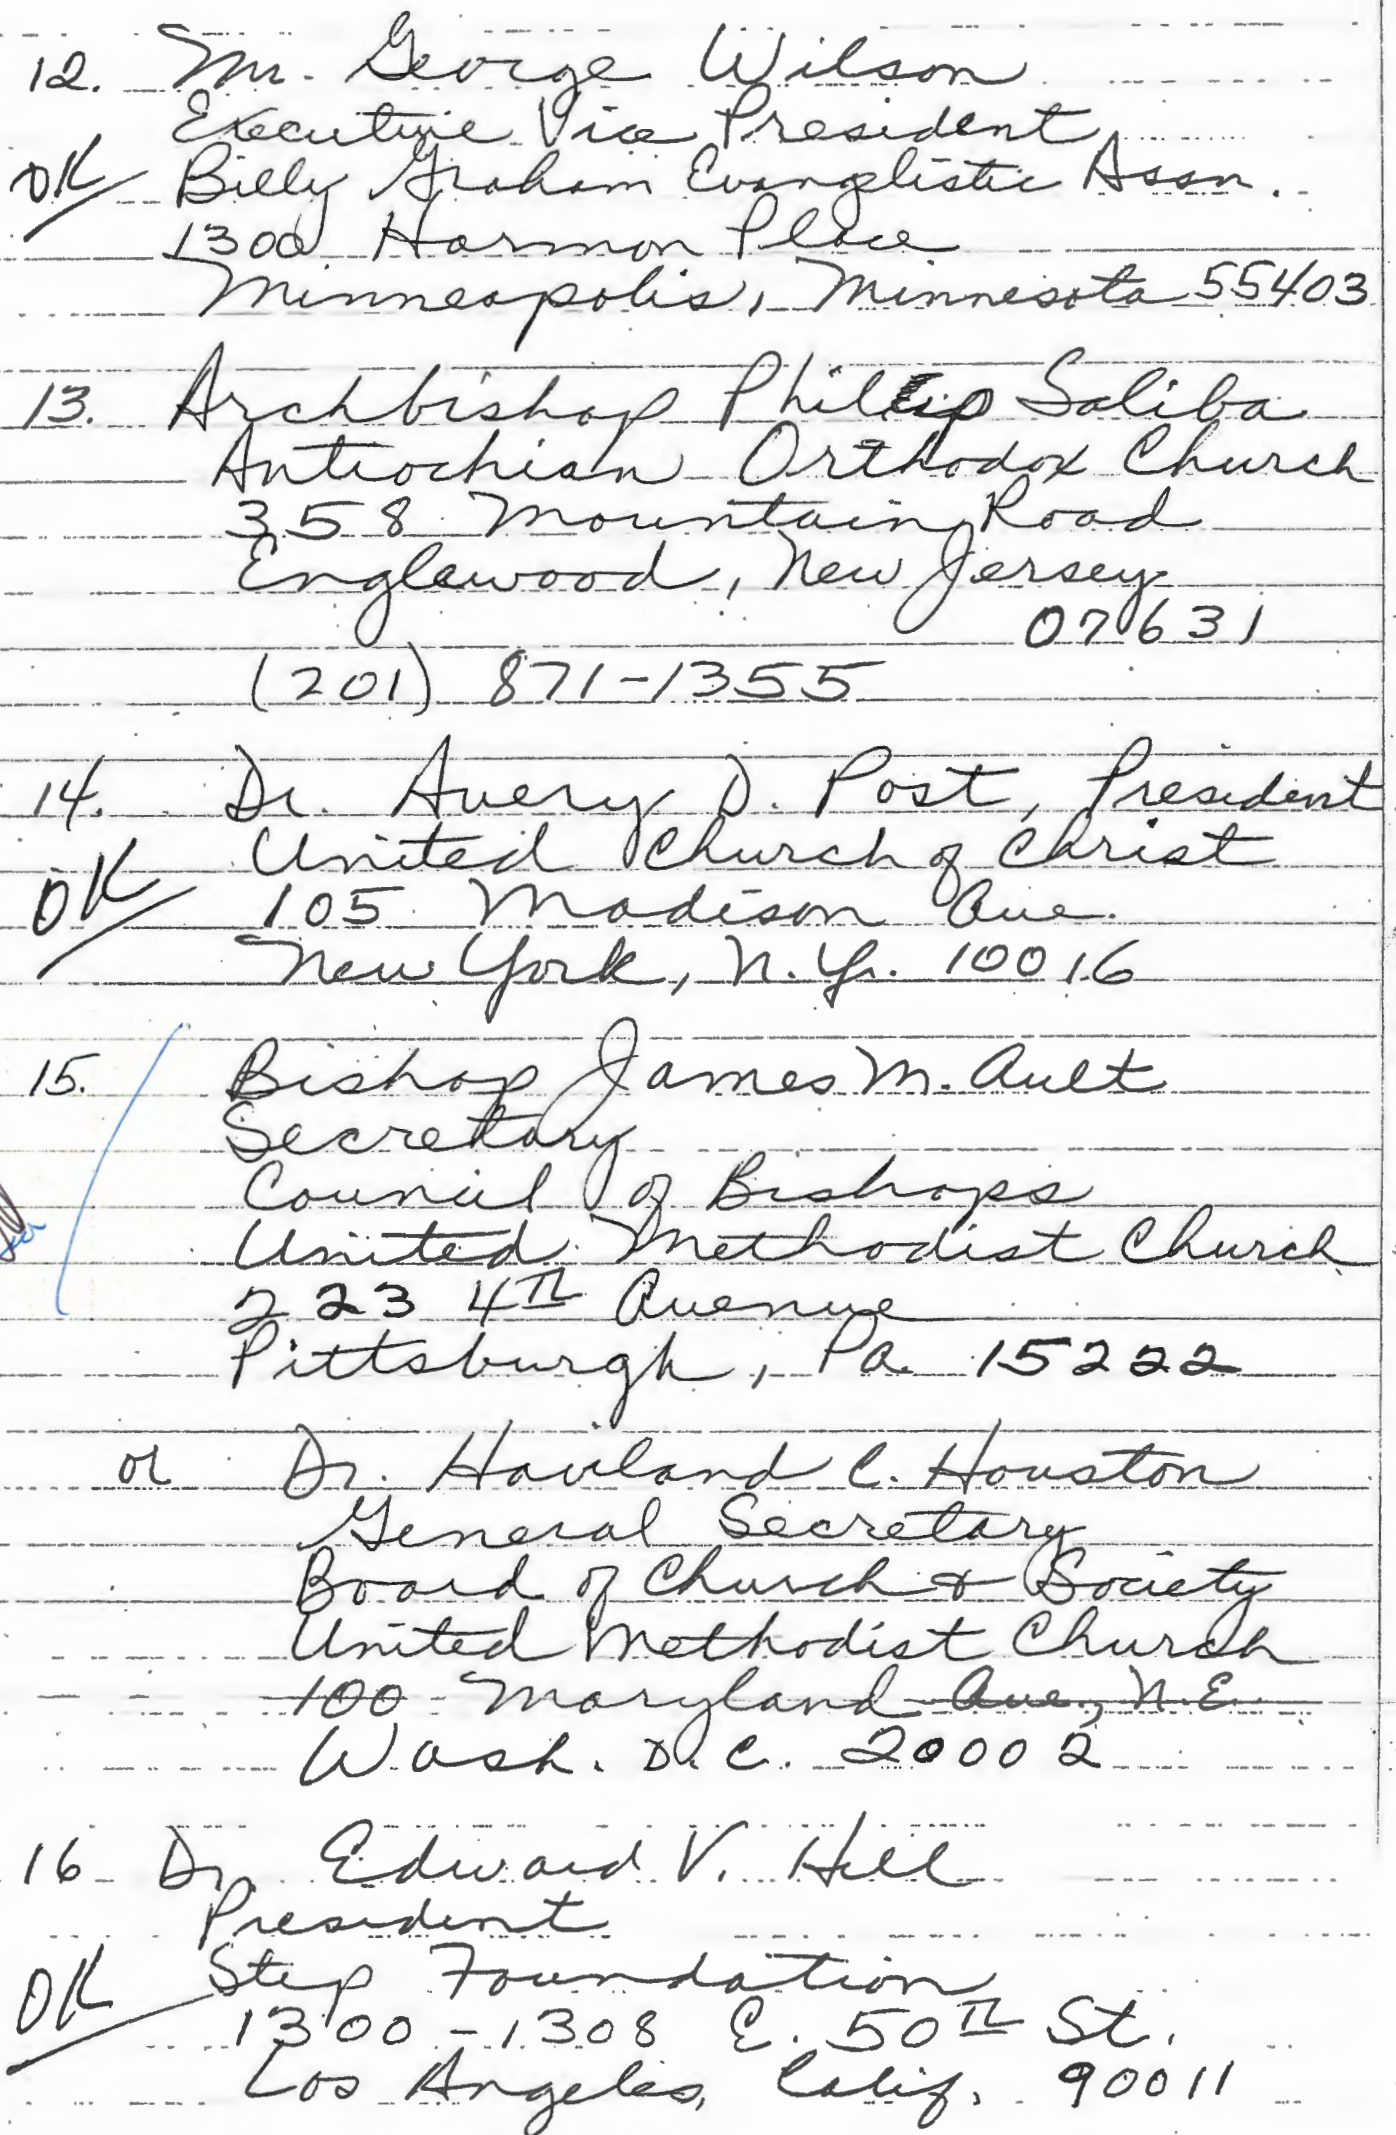 12. Mr. George Wilson
Executive Vice President
OK Billy Graham Evangelistic Assn.
1300 Harmon Place
Minneapolis, Minnesota 55403
13. Archbishop Philip Saliba
Antiochian Orthodox Church
358 Mountain Road
Englewood, New Jersey
07631
(201) 871-1355
14. Dr. Avery D. Post, President
United Church of Christ
OK 105 Madison Ave.
New York, N.Y. 10016
15. Bishop James M. Ault
Secretary
Council of Bishops
United Methodist Church
223 4th Avenue
Pittsburgh, Pa. 15222
or Dr. Haviland C. Houston
General Secretary
Board of Church & Society
United Methodist Church
100 Maryland Ave., N.E.
Wash. D.C. 20002
16 Dr. Edward V. Hill
President
OK Step Foundation
1300-1308 E. 50th St.
Los Angeles, Calif. 90011